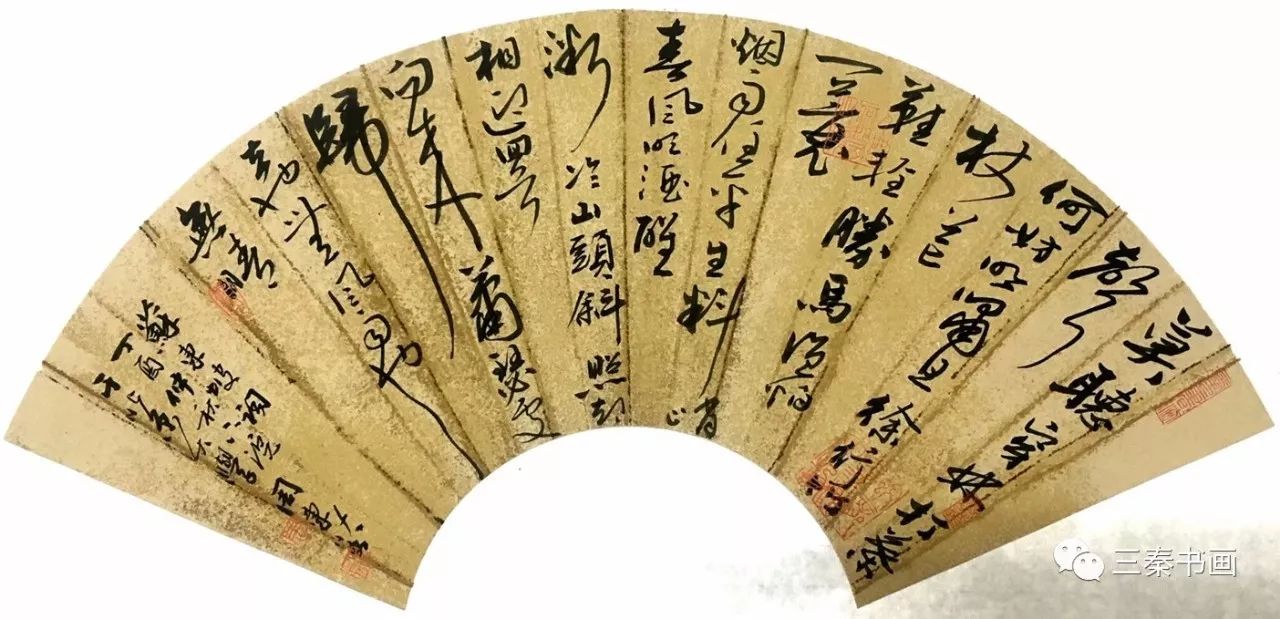 莫聽穿林打葉
聲
何妨吟嘯且徐行竹
杖芒
鞋輕勝馬誰怕
一蓑
烟雨任平生料峭
春風吹酒醒
微冷山頭斜照却
相迎回首
向來蕭瑟處
歸
去也無風雨也
無晴
蘇東坡詞
丁酉仲秋
三秦书画